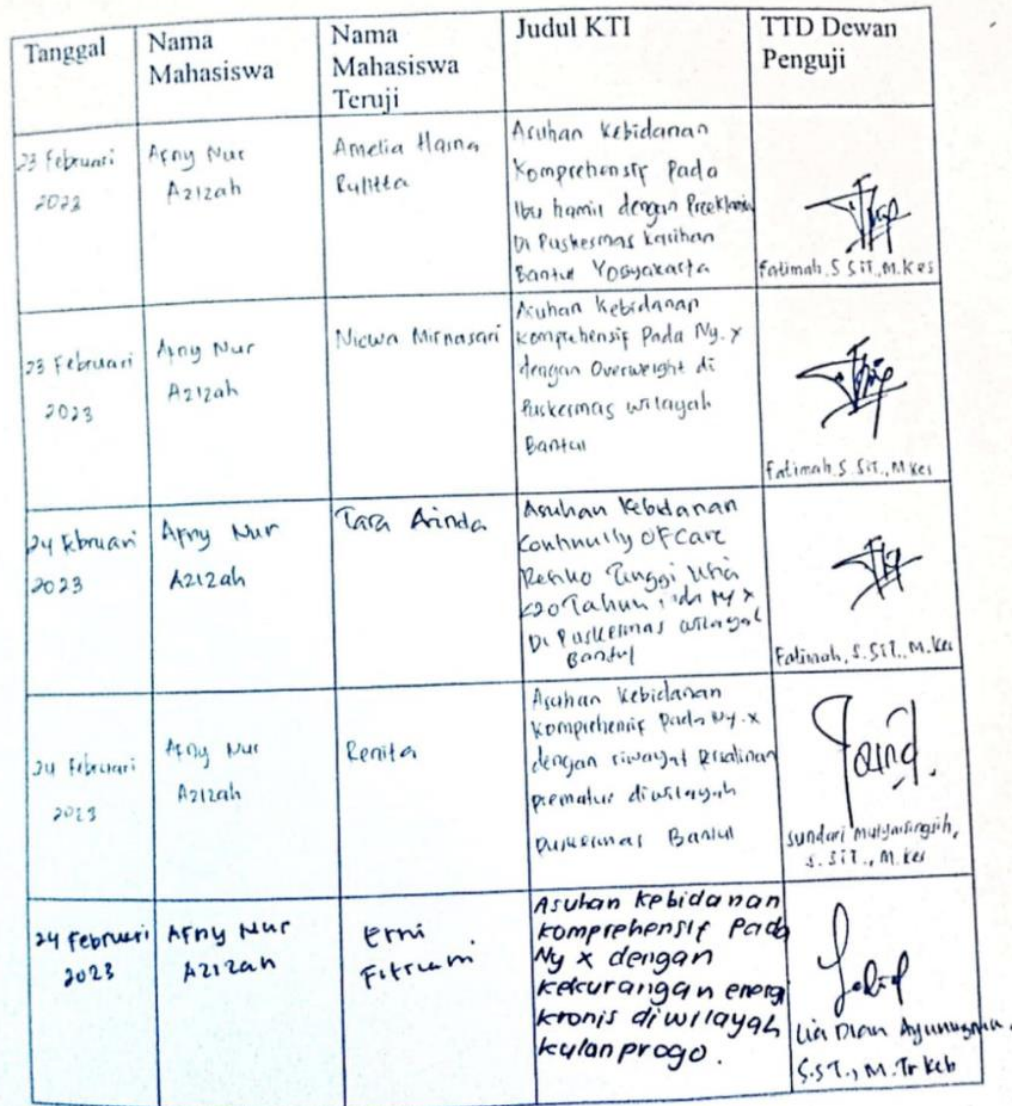 Tanggal
Nama
Mahasiswa
Nama
Mahasiswa
Teruji
Judul KTI
TTD Dewan
Penguji
23 Februari
2023
Afny Nur
Azizah
Amelia Hasna
Asuhan Kebidanan
Komprehensif Pada
Ibu hamil dengan Preeklamsia
Di Puskesmas Kasihan
Bantul Yogyakarta
Fatimah, S SiT., M.Kes
23 Februari
2023
Afny Nur
Azizah
Mirnasari
Asuhan Kebidanan
Komprehensif Pada Ny. X
dengan Overweight di
Puskesmas wilayah
Bantul
Fatimah. S SiT., M Kes
24 Februari
2023
Afny Nur
Azizah
Tara Arinda
Asuhan Kebidanan
Continuity Of Care
Resiko Tinggi Usia
<20 Tahun Ny X
Di Puskesmas wilayah
Bantul
Fatimah, S.SiT., M.Kes
24 Februari
2023
Afny Nur
Azizah
Renita
Asuhan Kebidanan
Komprehensif Pada Ny. X
dengan riwayat persalinan
prematur diwilayah
Puskesmas Bantul
Sundari Mulyaningsih,
S.SiT., M.Kes
24 Februari
2023
Afny Nur
Azizah
Erni
Asuhan Kebidanan
Komprehensif Pada
Ny X dengan
kekurangan energi
kronis diwilayah
kulonprogo.
Lia Dian
S.ST., M.Tr Keb